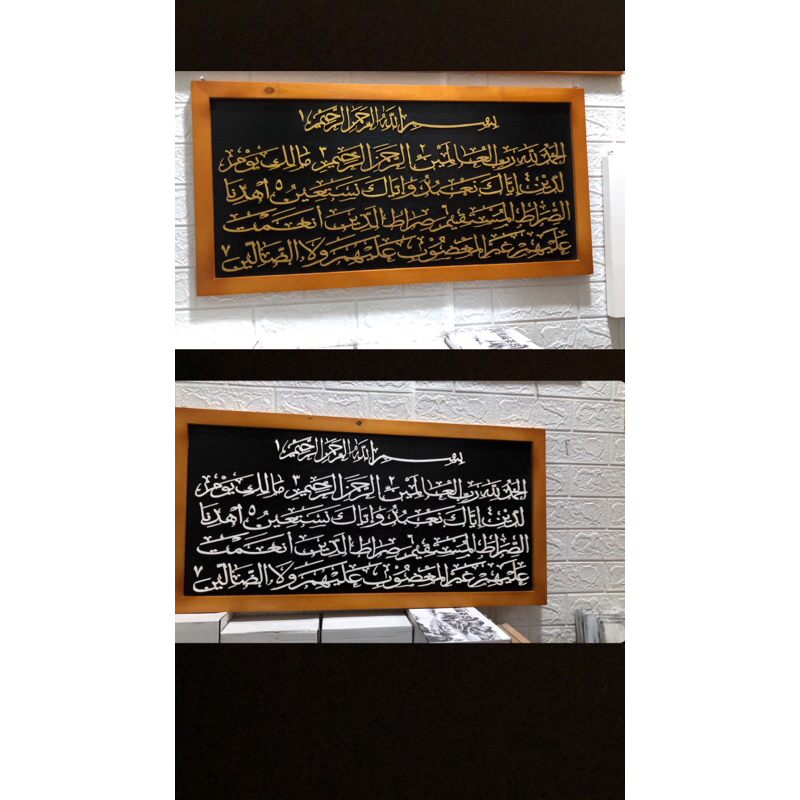 بسم الله الرحمن الرحيم ١
الحمد لله رب العالمين ٢ الرحمن الرحيم ٣ مالك يوم
الدين ٤ إياك نعبد وإياك نستعين ٥ اهدنا
الصراط المستقيم ٦ صراط الذين أنعمت
عليهم غير المغضوب عليهم ولا الضالين ٧
بسم الله الرحمن الرحيم ١
الحمد لله رب العالمين ٢ الرحمن الرحيم ٣ مالك يوم
الدين ٤ إياك نعبد وإياك نستعين ٥ اهدنا
الصراط المستقيم ٦ صراط الذين أنعمت
عليهم غير المغضوب عليهم ولا الضالين ٧